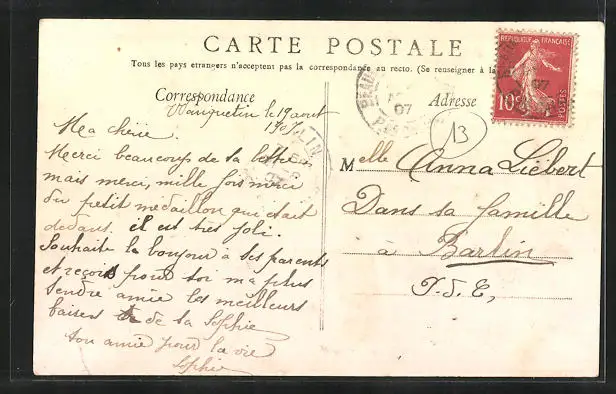 CARTE POSTALE
Tous les pays etrangers n'acceptent pas la correspondance au recto. (Se renseigner à la
Correspondance
Adresse
le 19 aout
1907
Ma chère.
Merci beaucoup de ta lettre
mais merci, mille fois merci
du petit medaillon qui était
dedans. il est très joli.
Souhaite le bonjour à tes parents
et reçois pour toi ma plus
tendre amie les meilleurs
baisers de ta Sophie
ton amie pour la vie
Sophie
13
Melle Anna Liébert
Dans sa famille
à Barlin
P. d. C,
REPUBLIQUE FRANÇAISE
10c
POSTES
07